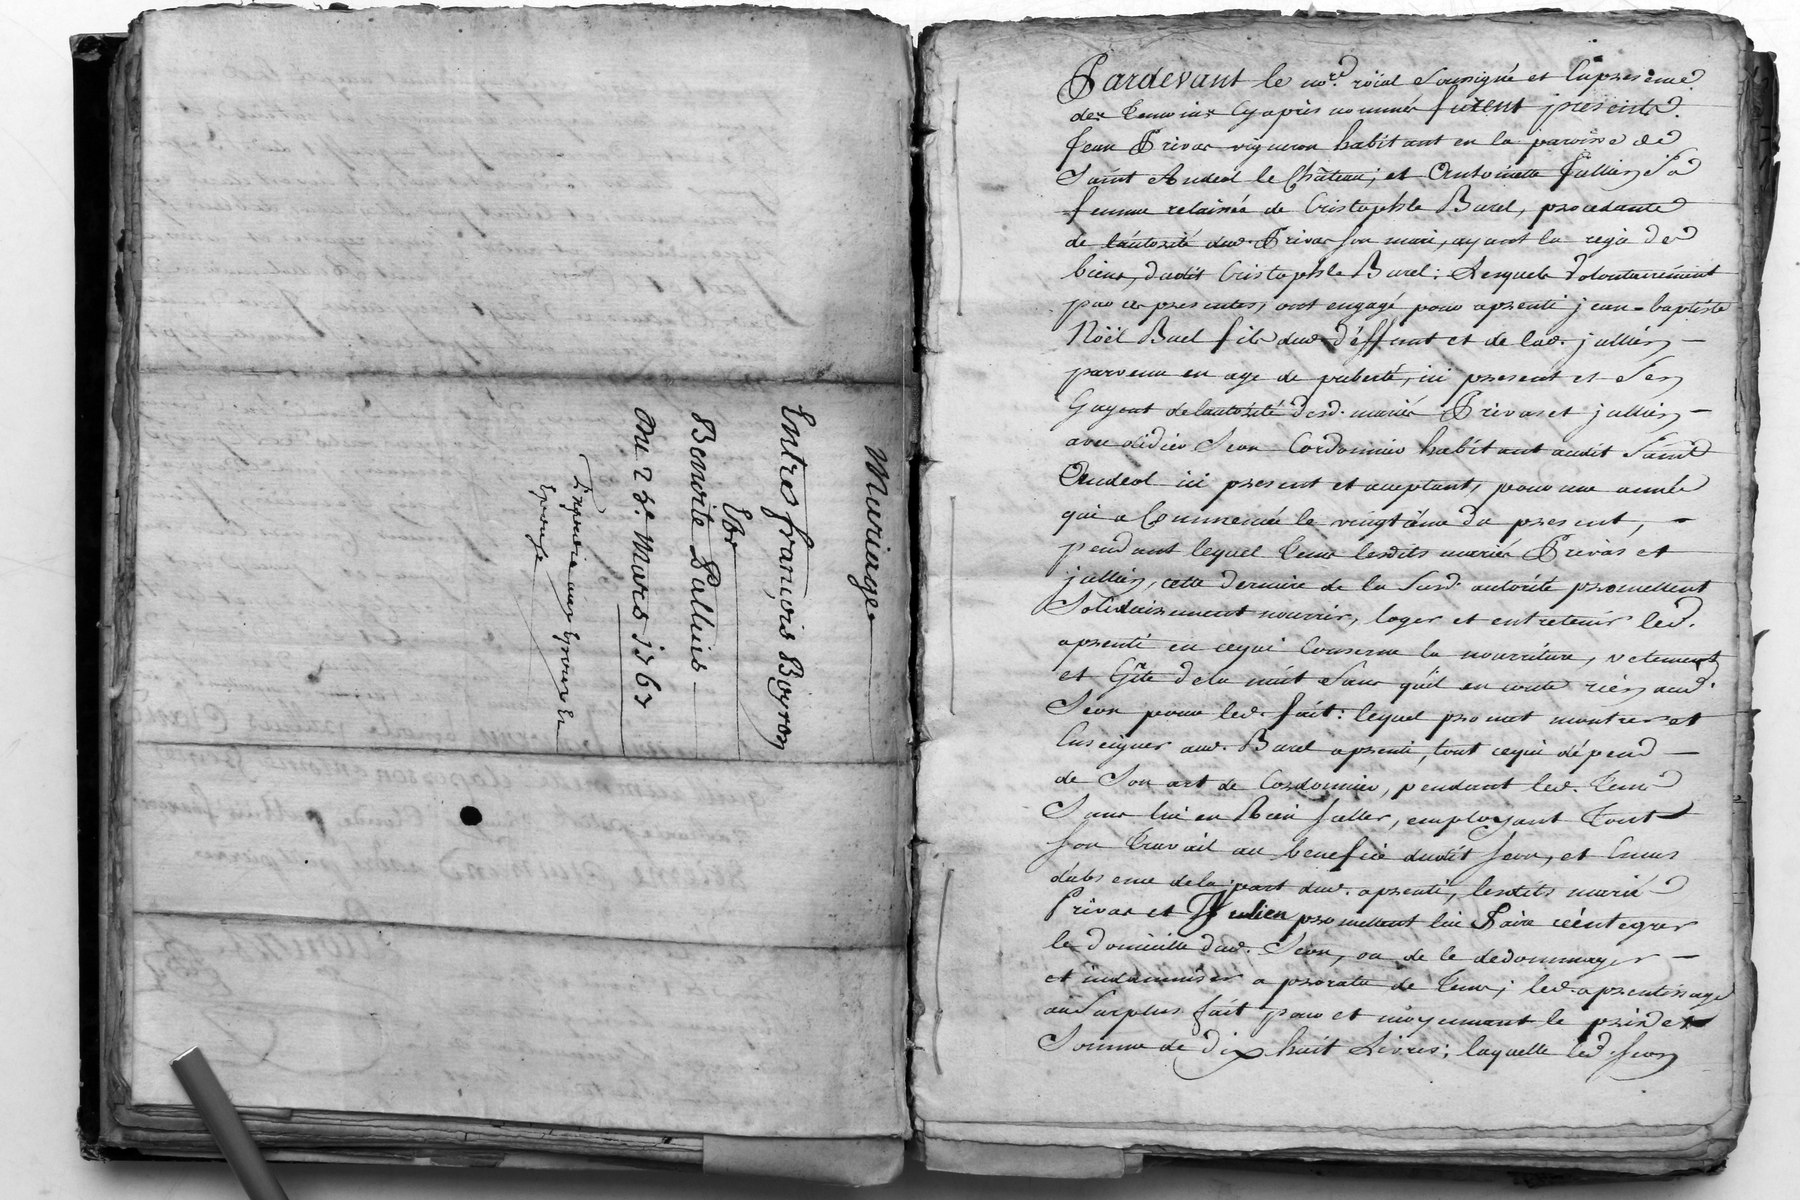 Mariage
Entres françois Boyron
Et
Benoite Pallius
Du 28e. Mars 1767
Expedié aux Epoux et
Epouse
Pardevant le nore. roïal Soussigné et En presence
des temoins cy après nommés furent presents
Jean Privas vigneron habitant en la paroisse de
Saint Andeol le Château; et Antoinette Jullien Sa
femme relaissée de Cristophle Burel, procedante
de l'autorité dud. Privas son mari, ayant la regie des
biens, dudit Cristophle Burel: Lesquels volontairement
par ces presentes, ont engagé pour aprenti jean-baptiste
Noël Burel fils dud. déffunt et de lad. jullien
parvenu en age de puberté, ici present et S'en
Gageant de l'autorité desd. mariés Privas et jullien
avec Didier Jean Cordonnier habitant audit Saint
Andeol ici present et aceptant, pour une année
qui a Commencée le vingtiéme du present,
pendant lequel tems lesdits mariés Privas et
jullien, cette derniere de la Susd. autorité promettent
Solidairement nourrir, loger et entretenir led.
aprenti en ceque Conserne la nourriture, vetements
et Gîte de la nuit Sans qu'il en coute rien aud.
Jean pour led. fait: lequel promet montrer et
Enseigner aud. Burel aprenti, tout cequi dépend
de Son art de Cordonnier, pendant led. tems
Sans lui en Rien Celler, employant tout
Son travail au benefice dudit Jean, et En cas
d'absence de la part dud. aprenti, lesdits mariés
Privas et Jullien promettent lui Faire réintegrer
le domicille dud. Jean, ou de le dedommager
et indamniser a prorata de tems; led. aprentissage
au Surplus fait pour et moyennant le prix et
Somme de dix huit Livres; laquelle led. Jean